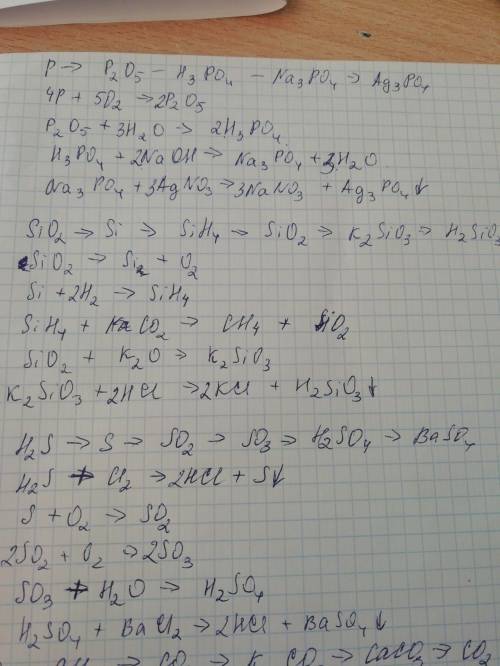 P → P2O5 – H3PO4 – Na3PO4 → Ag3PO4
4P + 5O2 → 2P2O5
P2O5 + 3H2O → 2H3PO4
H3PO4 + 2NaOH → Na3PO4 + 3H2O
Na3PO4 + 3AgNO3 → 3NaNO3 + Ag3PO4↓
SiO2 → Si → SiH4 → SiO2 → K2SiO3 → H2SiO3
SiO2 → Si + O2
Si + 2H2 → SiH4
SiH4 + CO2 → CH4 + SiO2
SiO2 + K2O → K2SiO3
K2SiO3 + 2HCl → 2KCl + H2SiO3↓
H2S → S → SO2 → SO3 → H2SO4 → BaSO4
H2S + Cl2 → 2HCl + S↓
S + O2 → SO2
2SO2 + O2 → 2SO3
SO3 + H2O → H2SO4
H2SO4 + BaCl2 → 2HCl + BaSO4↓
→ CO → K CO → CaCO2 → CO2